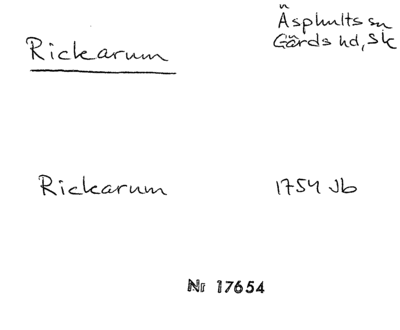 Rickarum
Äsphults sn
Gärds hd, Sk
Rickarum
1754 Jb
Nr 17654